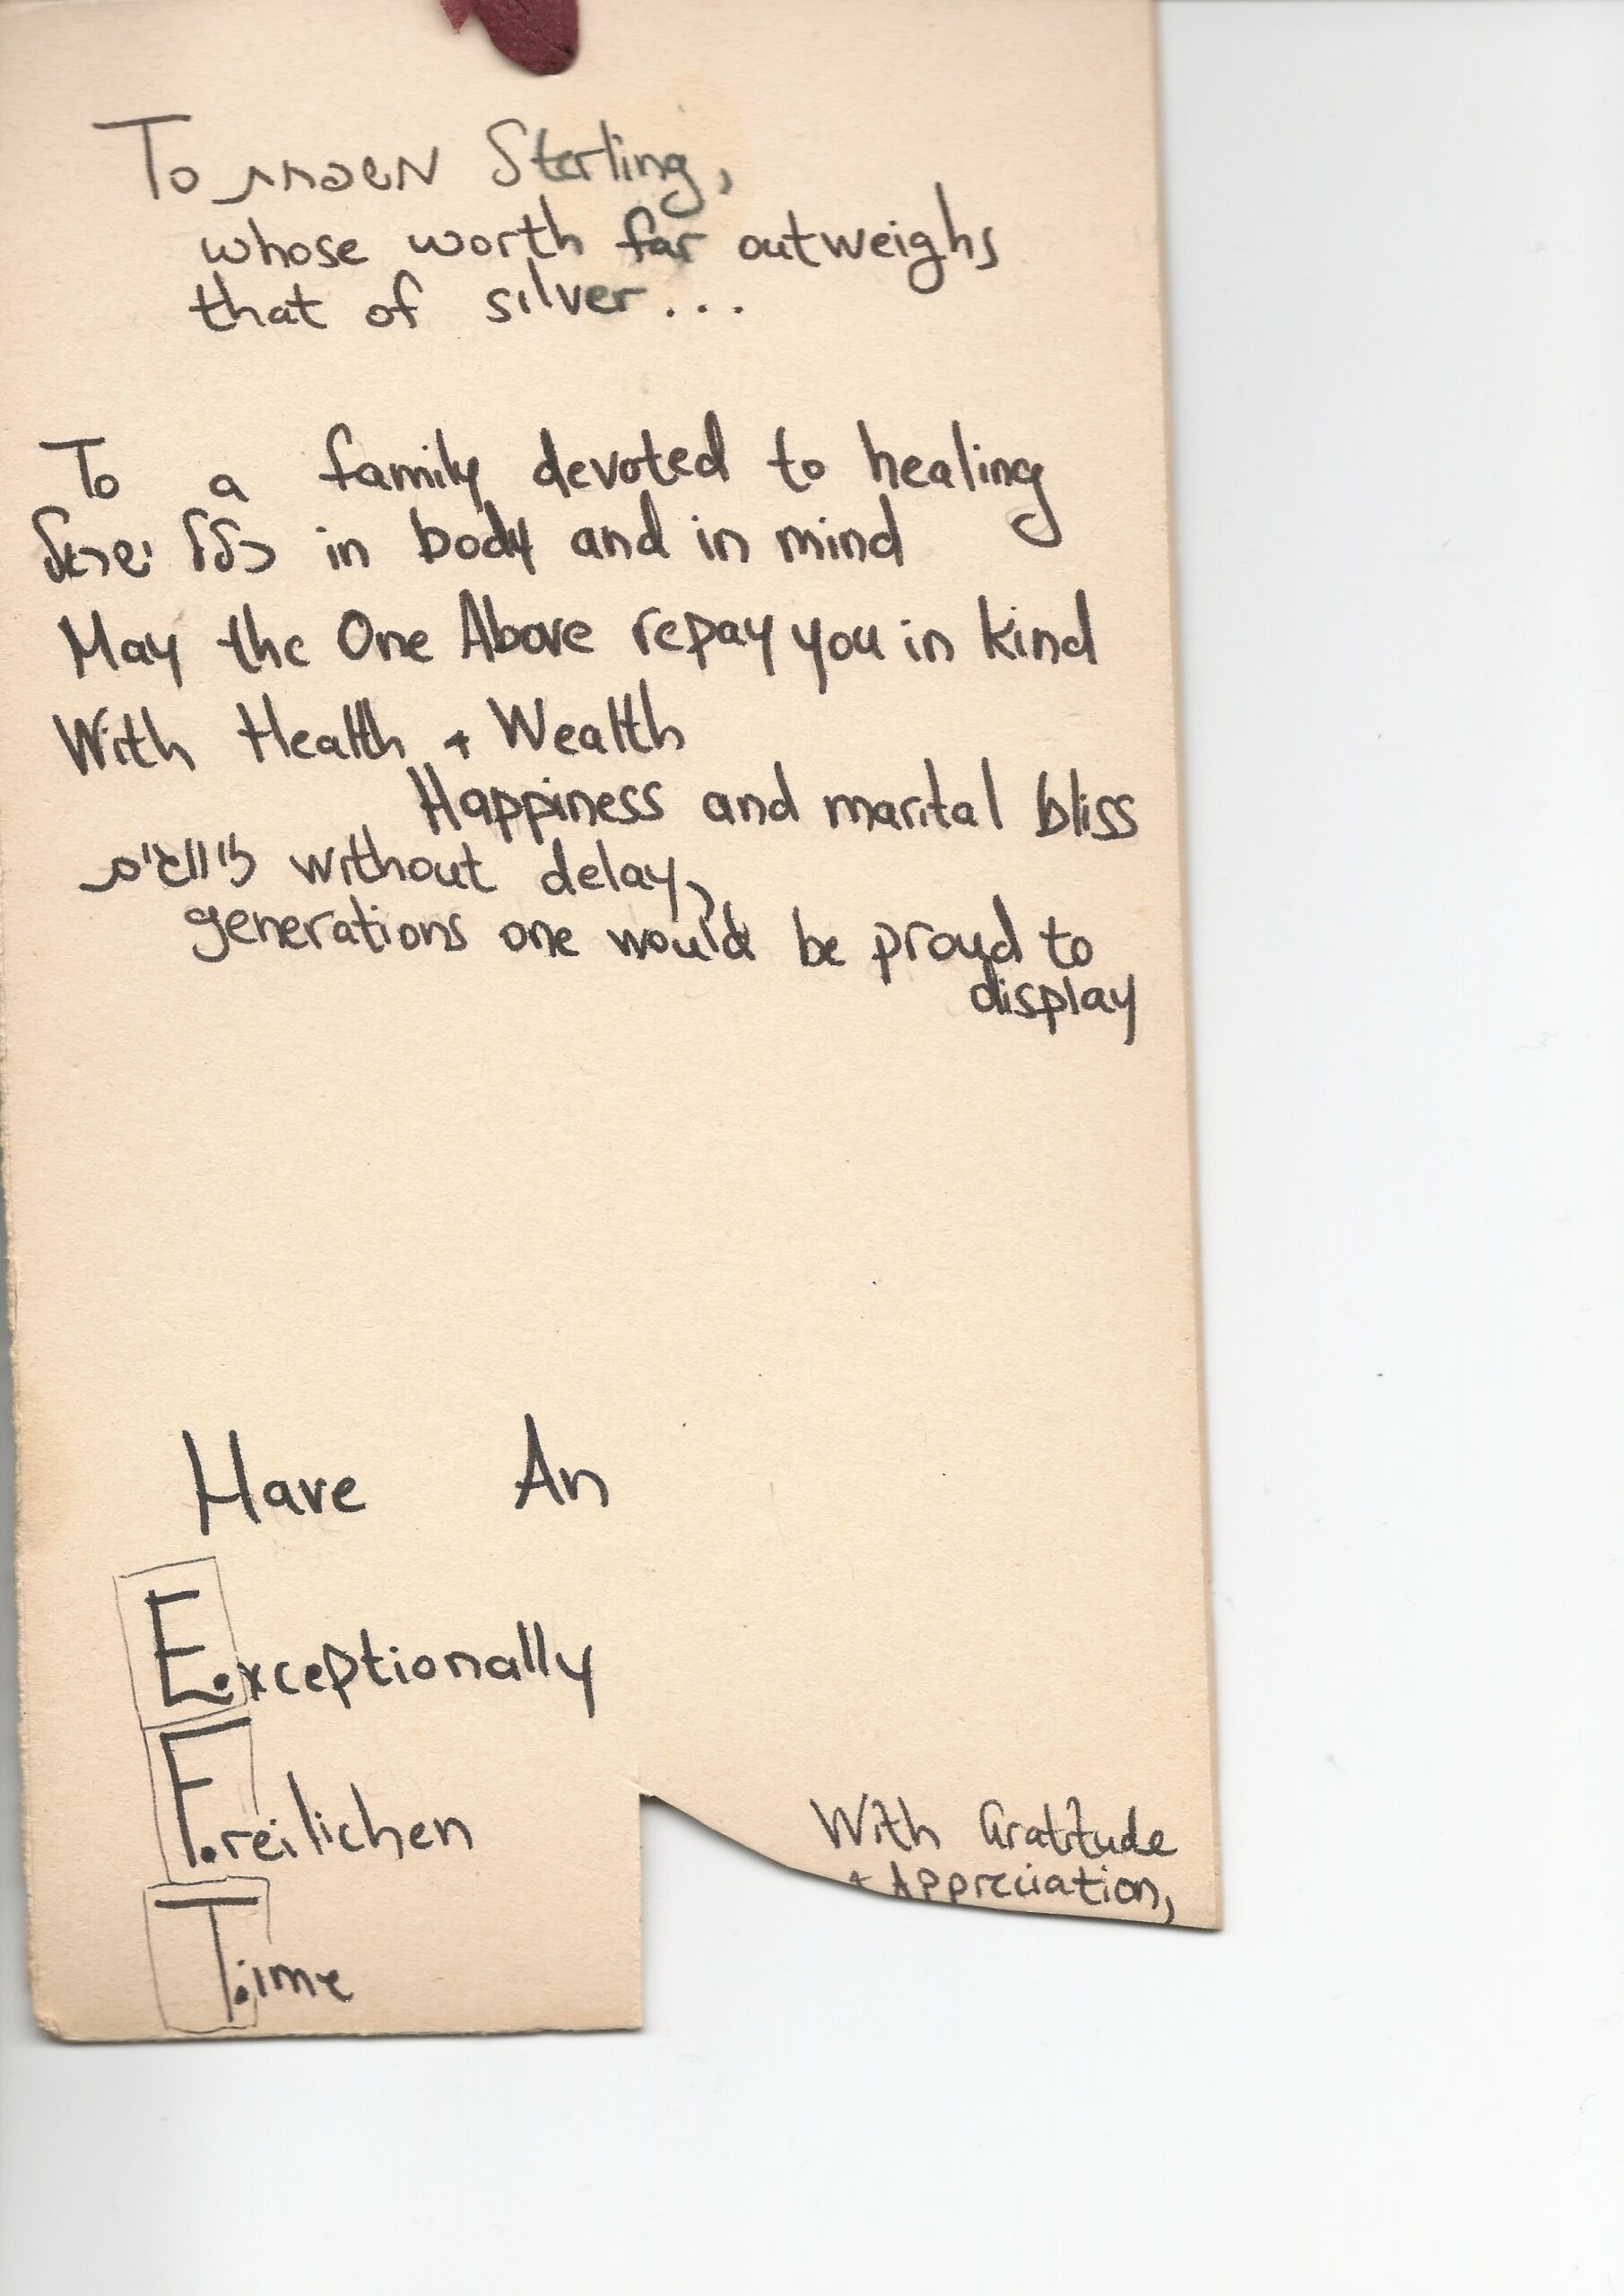 To משפחת Sterling,
whose worth far outweighs
that of silver...
To a family devoted to healing
כלל ישראל in body and in mind
May the One Above repay you in kind
With Health + Wealth
Happiness and marital bliss
זיווגים without delay,
generations one would be proud to
display
Have An
E.xceptionally
F.reilichen
T.ime
With Gratitude
+ Appreciation,